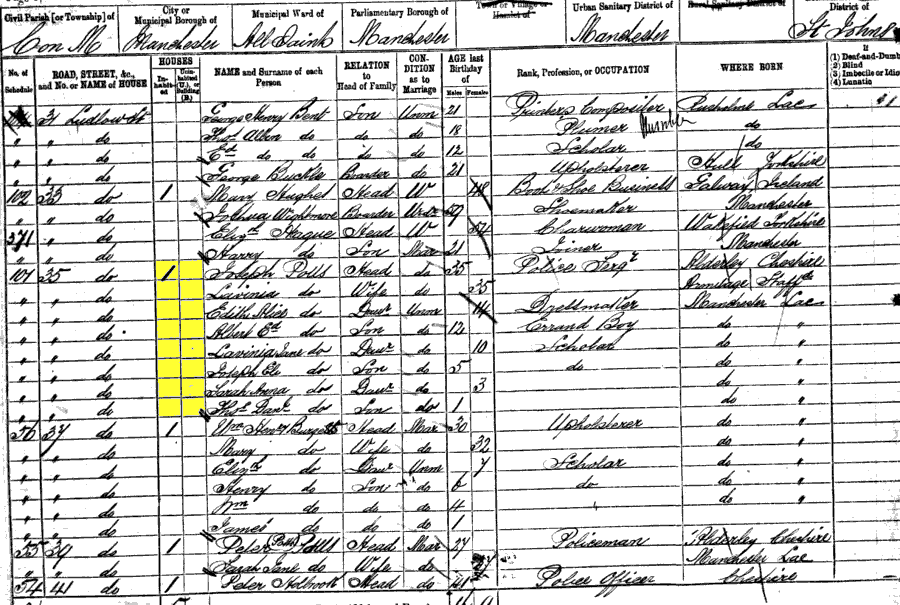 Civil Parish [or Township] of
City or Municipal Borough of
Municipal Ward of
Parliamentary Borough of
Town or Village or Hamlet of
Urban Sanitary District of
Rural Sanitary District of
District of
Con M Manchester All Saints Manchester Manchester St Johns
No. of Schedule
ROAD, STREET, &c., and No. or NAME of HOUSE
HOUSES
In-habited
Unin-habited (U.), or Building (B.)
NAME and Surname of each Person
RELATION to Head of Family
CON-DITION as to Marriage
AGE last Birthday of
Males
Females
Rank, Profession, or OCCUPATION
WHERE BORN
If
(1) Deaf-and-Dumb
(2) Blind
(3) Imbecile or Idiot
(4) Lunatic
31 Ludlow St George Henry Bent Son Unm 21 Printers Compositor Rusholme Lac
" " do Thos Allen do do do 18 Plumer Plumber do
" " do Ed do do do do 12 Scholar do
" " do George Buckley Boarder do 21 Upholsterer Hull Yorkshire
102 33 do 1 Mary Hughes Head W 48 Boot & Shoe Business Galway Ireland
" " do Joshua Boarder 59 Shoemaker Manchester
371 " do Elizth Hague Head W 54 Charwoman Wakefield Yorkshire
" " do Harry do Son Mar 21 Joiner Manchester
101 35 do 1 Joseph Potts Head do 35 Police Sergt Alderley Cheshire
" " do Lavinia do Wife do 35 Armitage Staffs
" " do Edith do Daur Unm 14 Dressmaker Manchester Lac
" " do Albert Ed do Son do 12 Errand Boy do "
" " do Lavinia Jane do Daur do 10 Scholar do "
" " do Joseph do Son do 5 do do "
" " do Sarah Anna do Daur do 3 do "
" " do Thos Danl do Son do 1 do "
56 37 do 1 Wm Henry Burgess Head Mar 30 Upholsterer do "
" " do Mary do Wife do 32 do "
" " do Elizth do Daur Unm 7 Scholar do "
" " do Henry do Son do 6 do do "
" " do Wm do do do 4 do "
" " do James do do do 1
55 39 do 1 Peter Potts Head Mar 27 Policeman Alderley Cheshire
" " do Sarah Jane do Wife do 27 Manchester Lac
54 41 do 1 Peter Holbrook Head do 41 Police Officer Cheshire